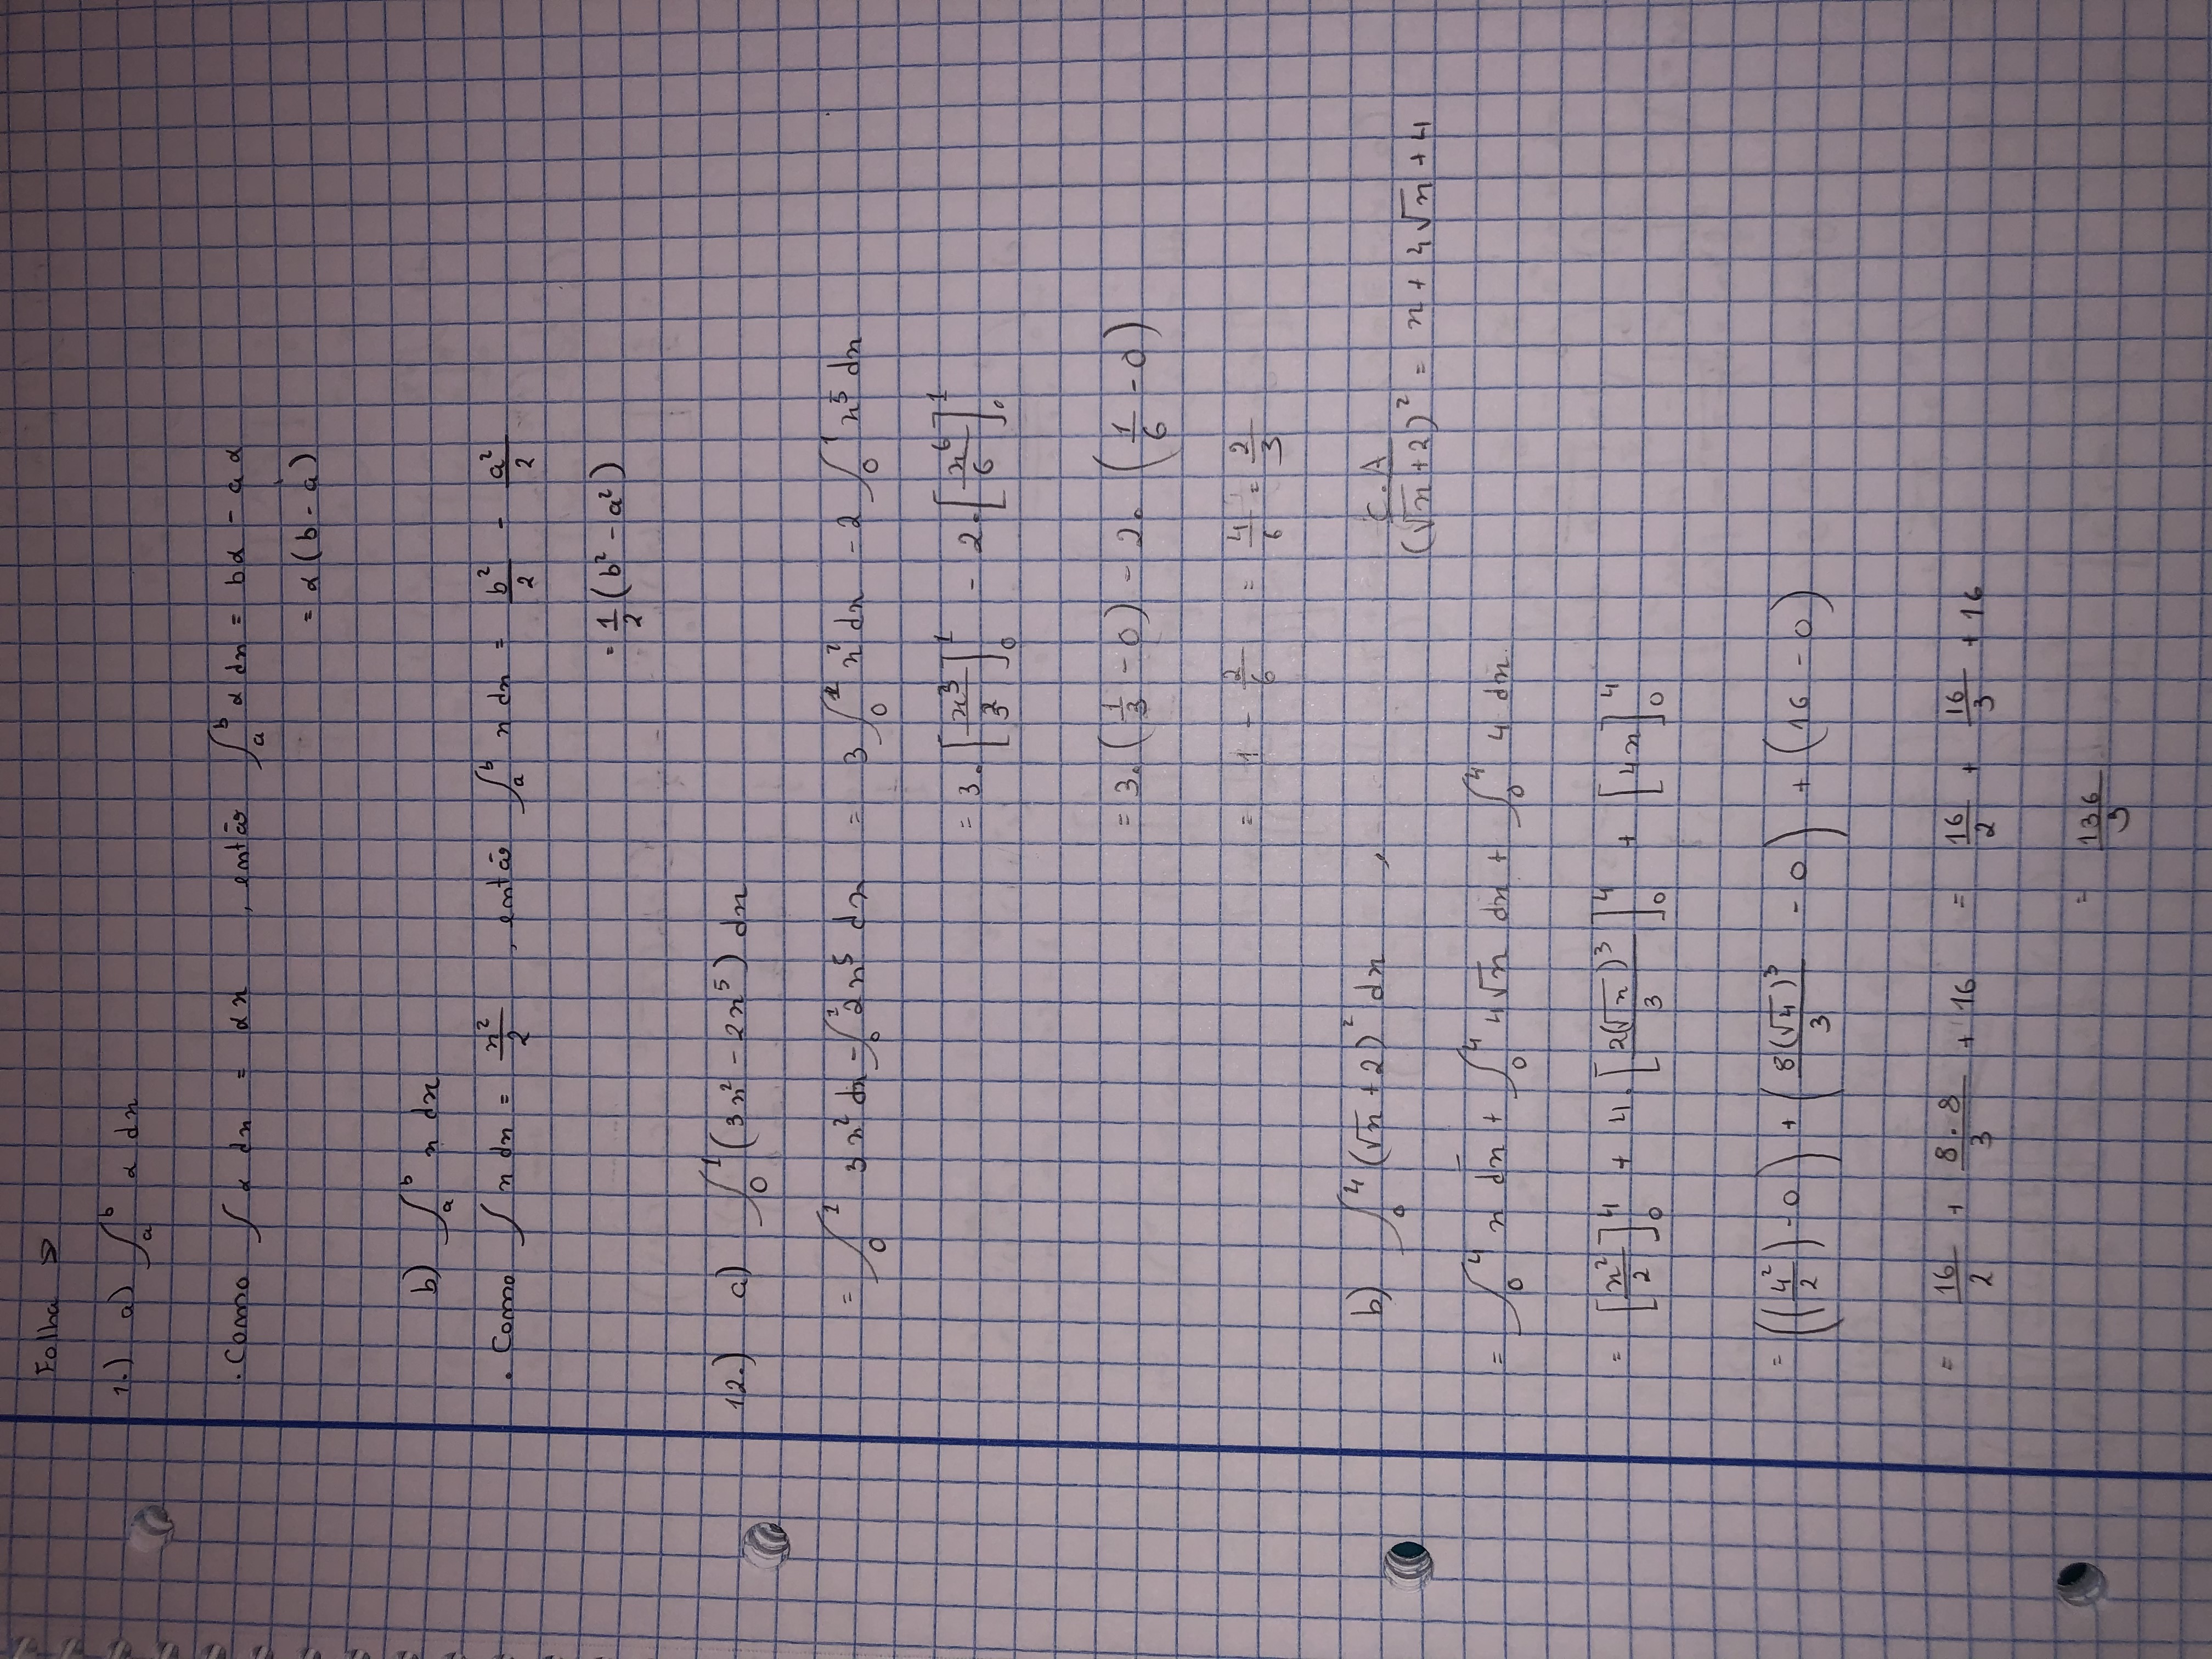 Folha 5
1.) a) ∫_a^b α dx
. Como ∫ α dx = αx , então ∫_a^b α dx = bα - aα
= α(b - a)
b) ∫_a^b x dx
. Como ∫ x dx = x²/2 , então ∫_a^b x dx = b²/2 - a²/2
= 1/2 (b² - a²)
12.) a) ∫_0^1 (3x² - 2x⁵) dx
= ∫_0^1 3x² dx - ∫_0^1 2x⁵ dx = 3 ∫_0^1 x² dx - 2 ∫_0^1 x⁵ dx
= 3. [x³/3]_0^1 - 2. [x⁶/6]_0^1
= 3. (1/3 - 0) - 2. (1/6 - 0)
= 1 - 2/6 = 4/6 = 2/3
b) ∫_0^4 (√x + 2)² dx ,
C.A
(√x + 2)² = x + 4√x + 4
= ∫_0^4 x dx + ∫_0^4 4√x dx + ∫_0^4 4 dx
= [x²/2]_0^4 + 4. [2(√x)³/3]_0^4 + [4x]_0^4
= ((4²/2) - 0) + (8(√4)³/3 - 0) + (16 - 0)
= 16/2 + 8.8/3 + 16 = 16/2 + 16/3 + 16
= 136/3